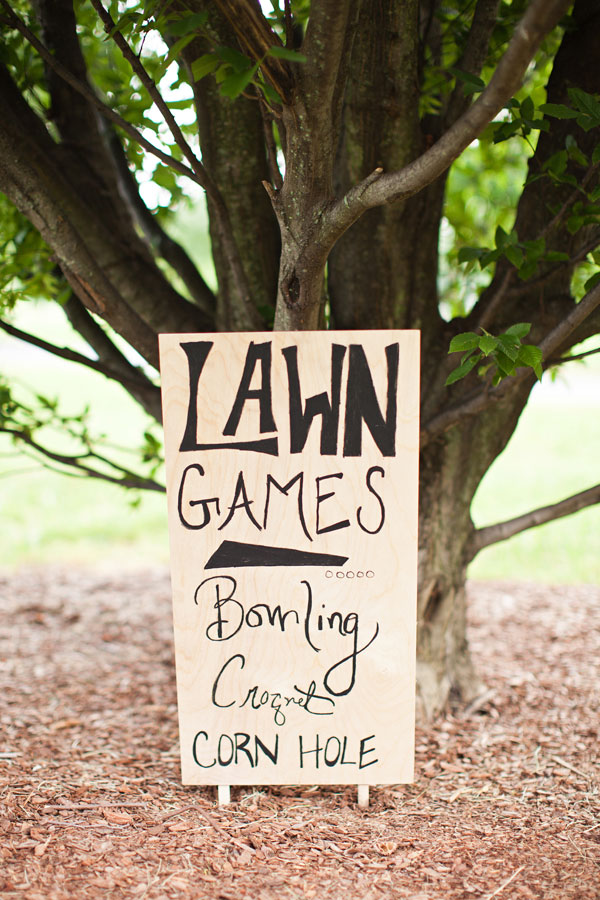 LAWN
GAMES
Bowling
Croquet
CORN HOLE